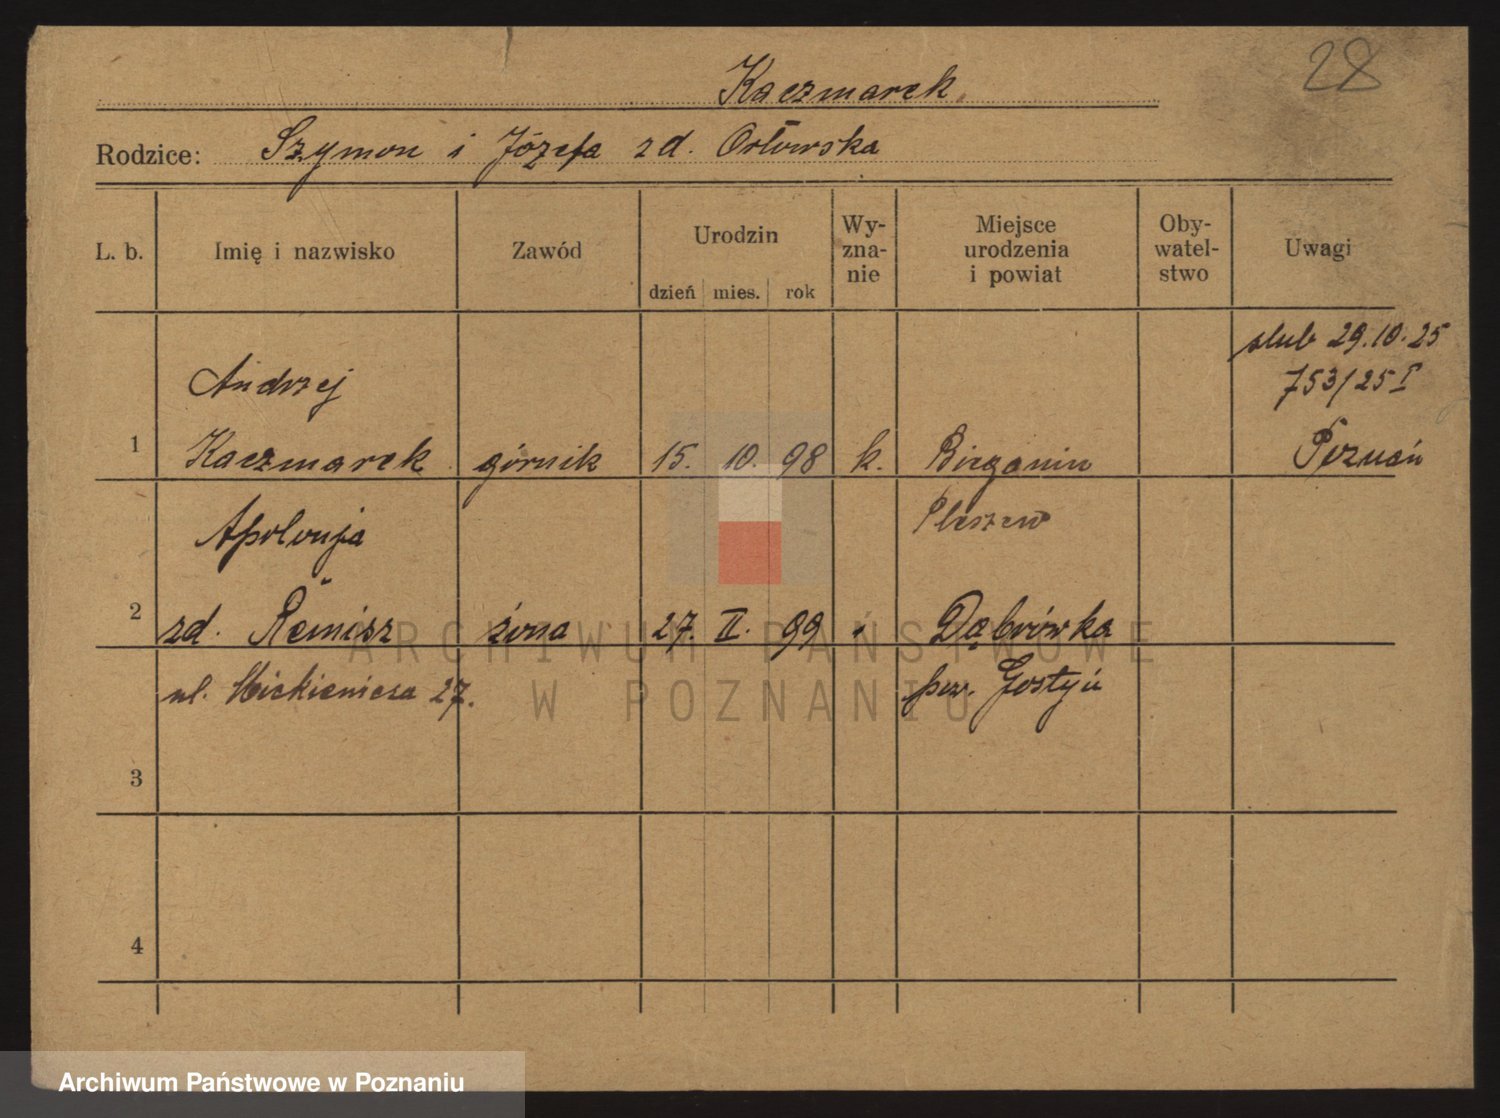 28
Kaczmarek
Rodzice: Szymon i Józefa zd. Orłowska
L. b. Imię i nazwisko Zawód Urodzin Wy-zna-nie Miejsce urodzenia i powiat Oby-watel-stwo Uwagi
dzień mies. rok
ślub 29.10.25
Andrzej 753/25 I
1 Kaczmarek górnik 15. 10. 98 k. Bieganin Poznań
Apolonja Pleszew
2 zd. Remisz żona 27. II. 99 Dąbrówka
ul. Mickiewicza 27. pow. Gostyń
3
4
ARCHIWUM PAŃSTWOWE
W POZNANIU
Archiwum Państwowe w Poznaniu